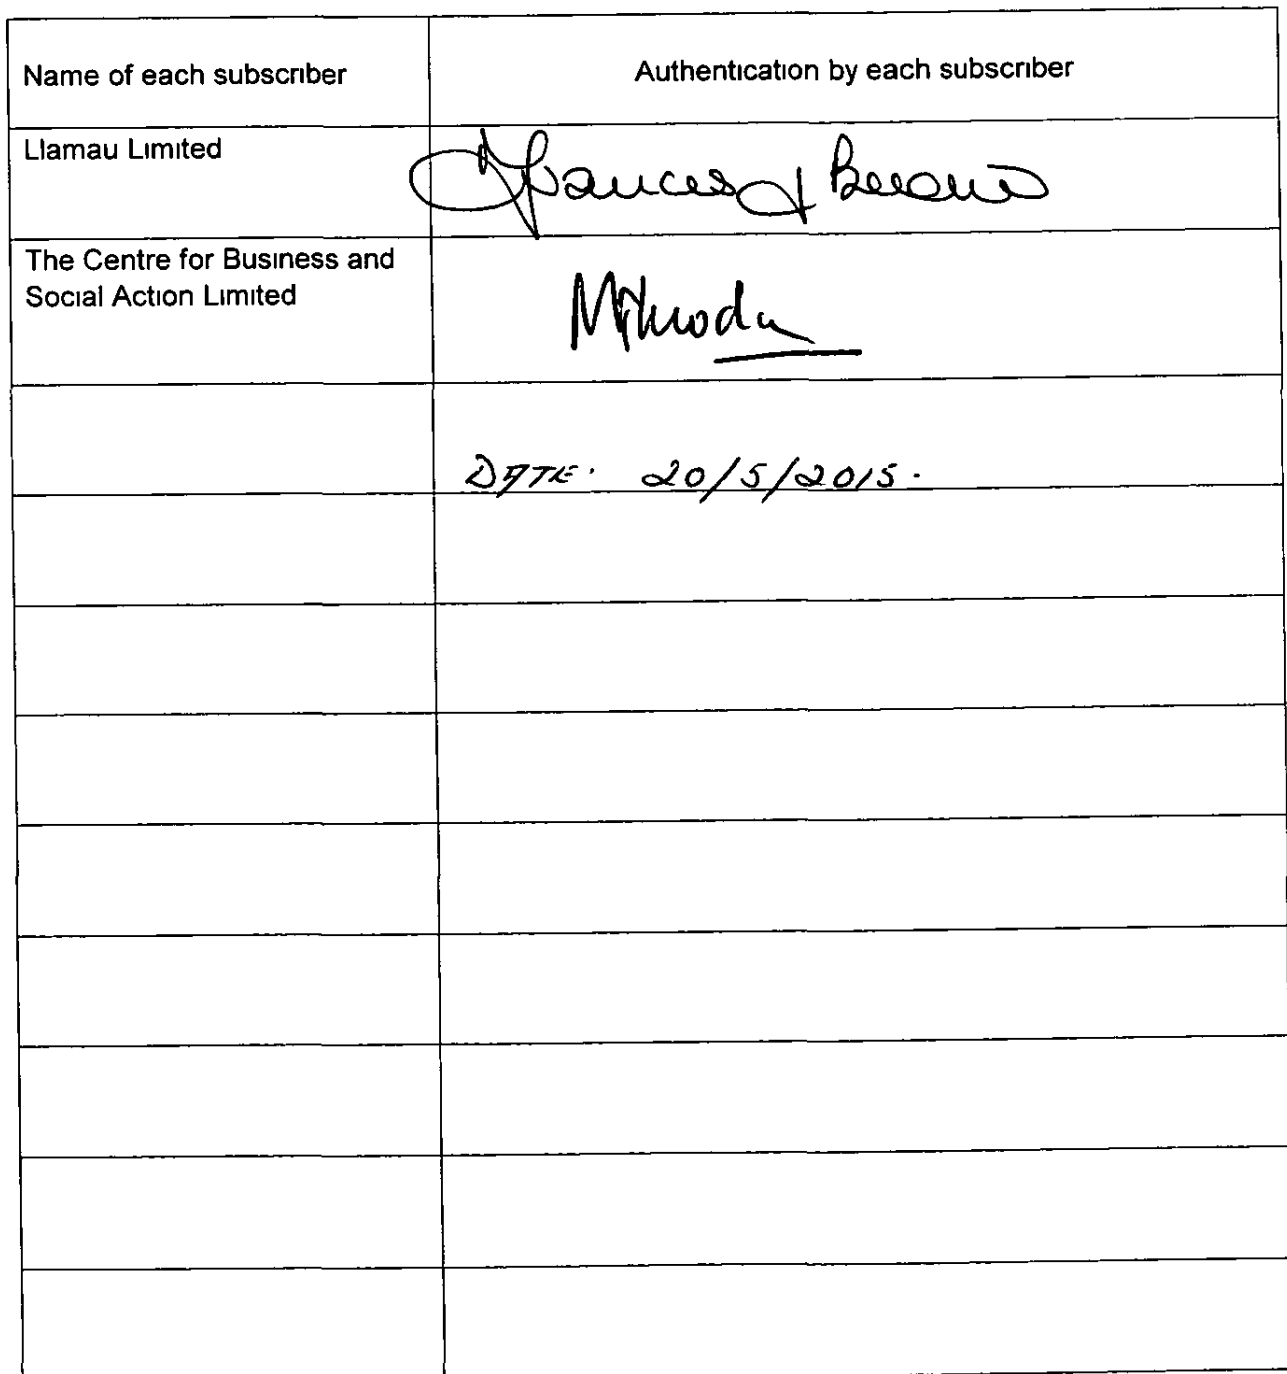 Name of each subscriber
Authentication by each subscriber
Llamau Limited
Frances J Beecher
The Centre for Business and
Social Action Limited
DATE. 20/5/2015.